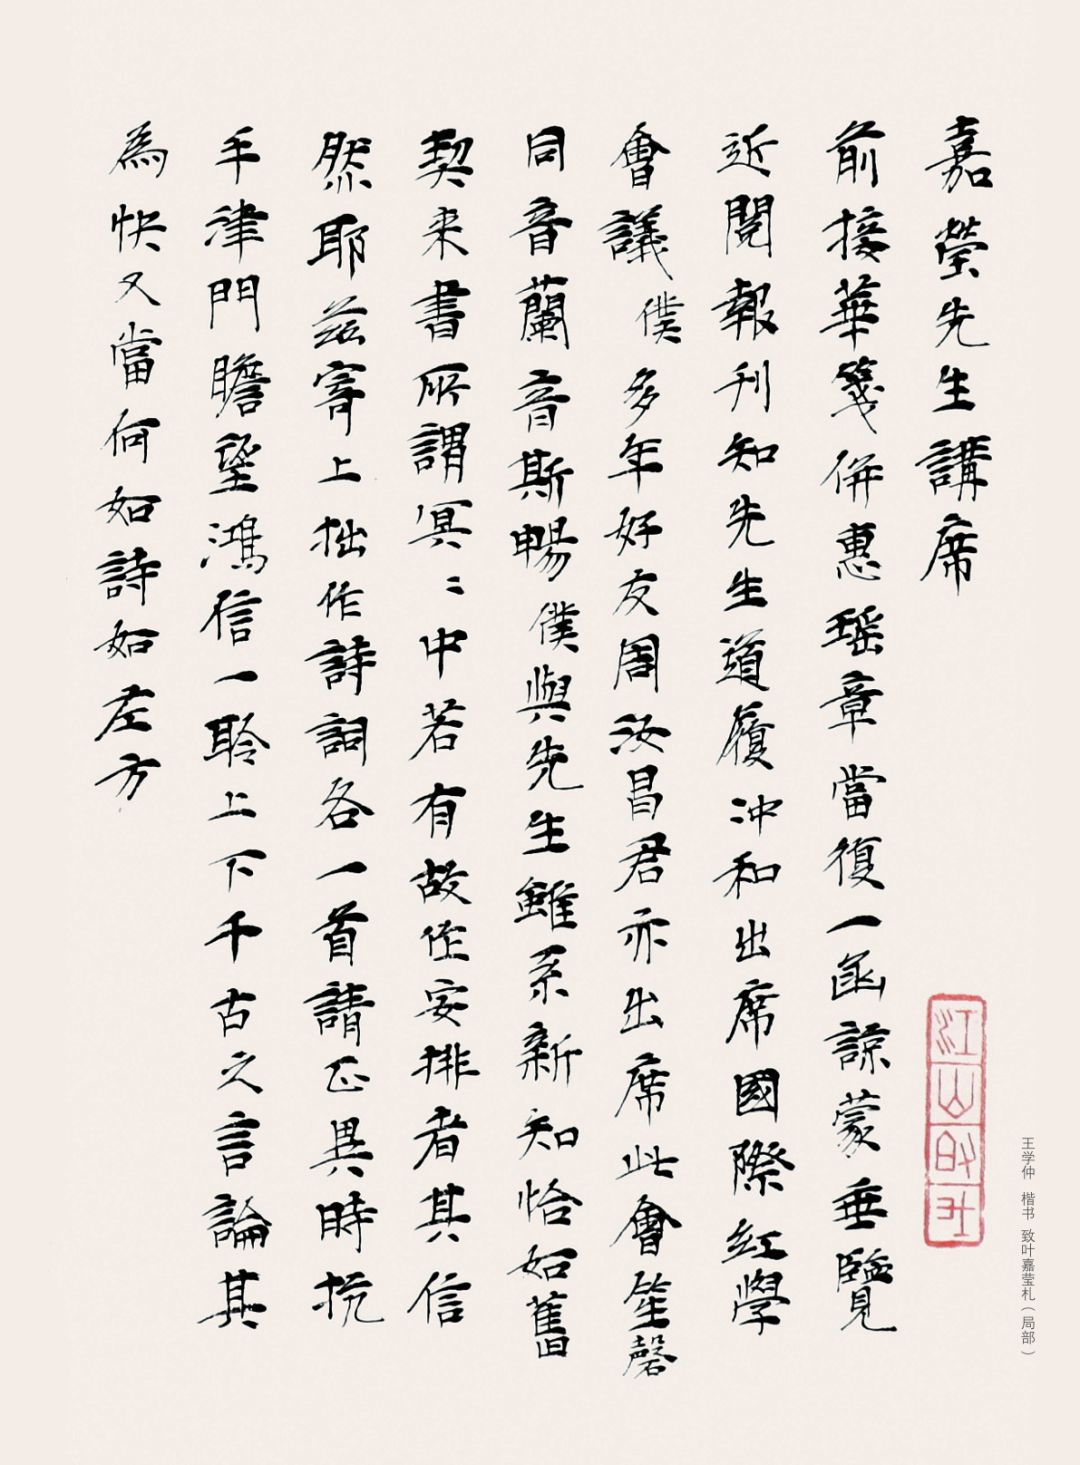 嘉瑩先生講席
前接華箋併惠瑶章當復一函諒蒙垂覽
近閱報刊知先生道履冲和出席國際紅學
會議僕多年好友周汝昌君亦出席此會笙磬
同音蘭音斯暢僕與先生雖系新知恰如舊
契来書所謂冥〻中若有故作安排者其信
然耶兹寄上拙作詩詞各一首請正異時抗
手津門瞻望鴻信一聆上下千古之言論其
為快又當何如詩如左方
江山
王学仲 楷书 致叶嘉莹札（局部）